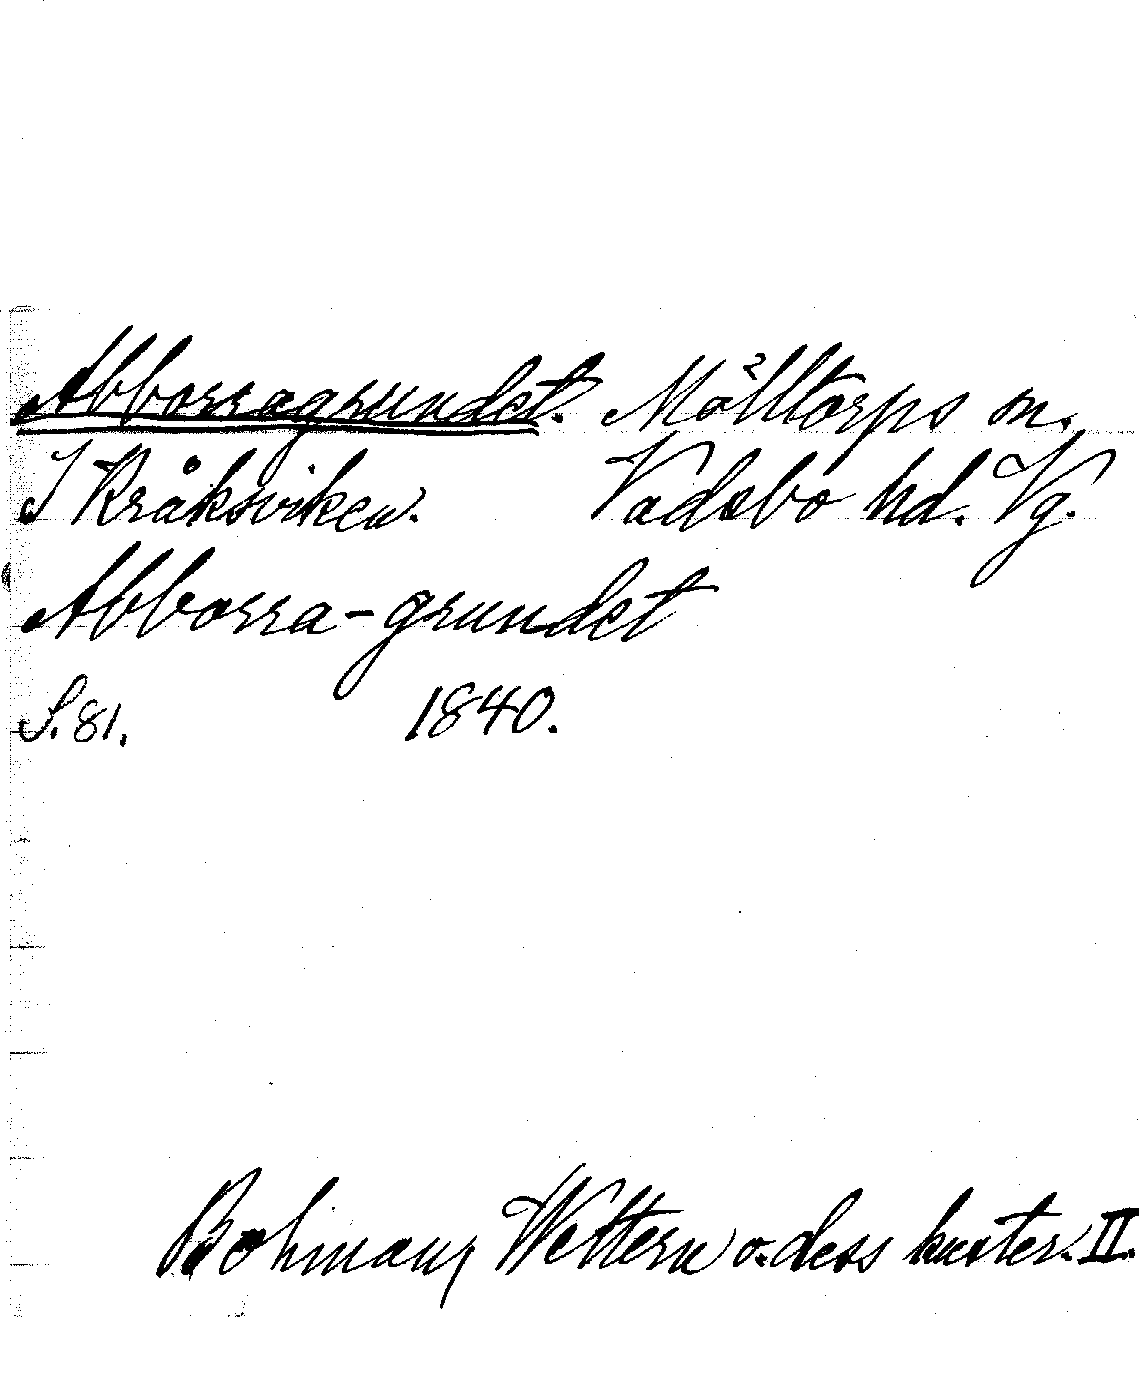 Abborragrundet. Mölltorps sn.
I Kråksviken. Vadsbo hd. Vg.
Abborra-grundet
S. 81. 1840.
Bohman, Wettern o. dess kuster. II.